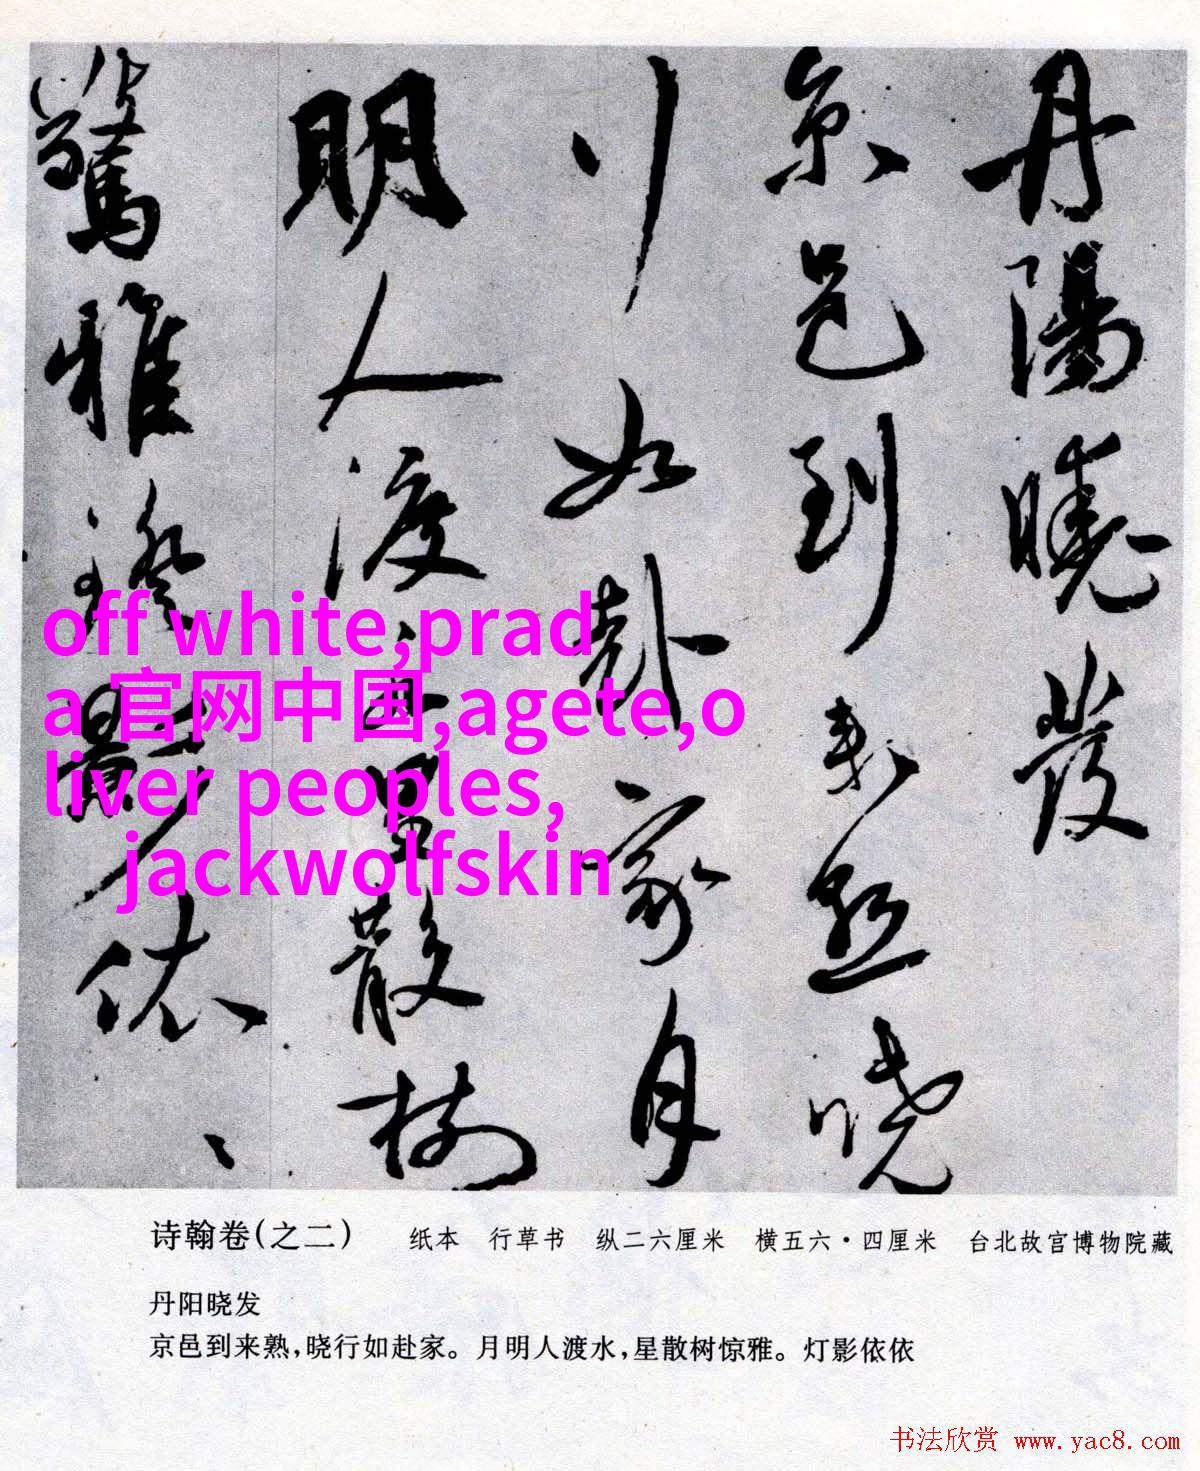 丹陽曉發
京邑到来熟曉
行如赴家月
明人渡水星散樹
驚雅燈影依、、
off white,prad
a 官网中国,agete,o
liver peoples,
jackwolfskin
诗翰卷(之二) 纸本 行草书 纵二六厘米 横五六·四厘米 台北故宫博物院藏
丹阳晓发
京邑到来熟,晓行如赴家。月明人渡水,星散树惊雅。灯影依依
书法欣赏 www.yac8.com